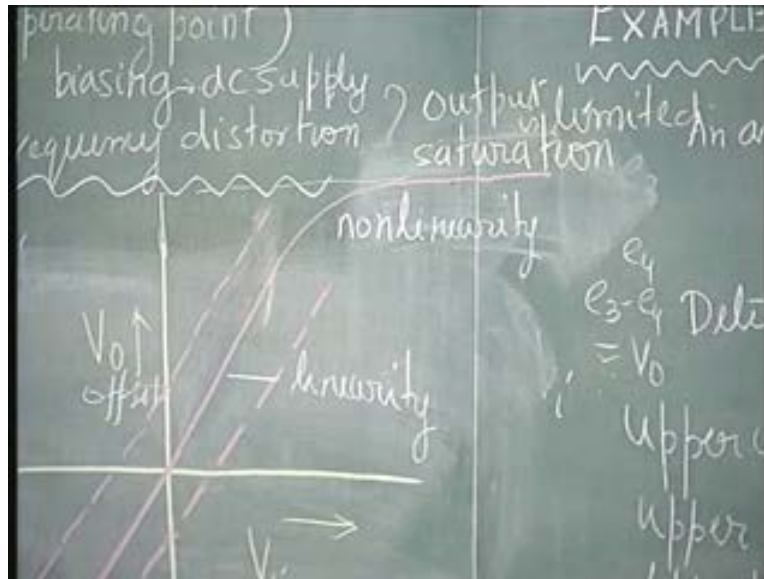 perating point)
biasing→dc supply
equency distortion
output is limited
saturation
nonlinearity
V₀ ↑
offset
linearity
V →
EXAMPLE
in a
e₄
e₃-e₄
= V₀
Upper
Upper